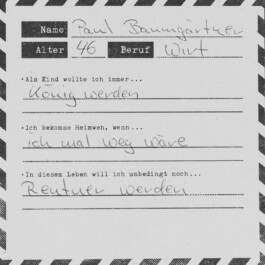 Name Paul Baumgärtner
Alter 46 Beruf Wirt
Als Kind wollte ich immer...
König werden
Ich bekomme Heimweh, wenn...
ich mal weg wäre
In diesem Leben will ich unbedingt noch...
Rentner werden